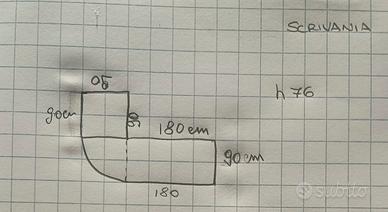 SCRIVANIA
h 76
90cm
180cm
90cm
180
subito